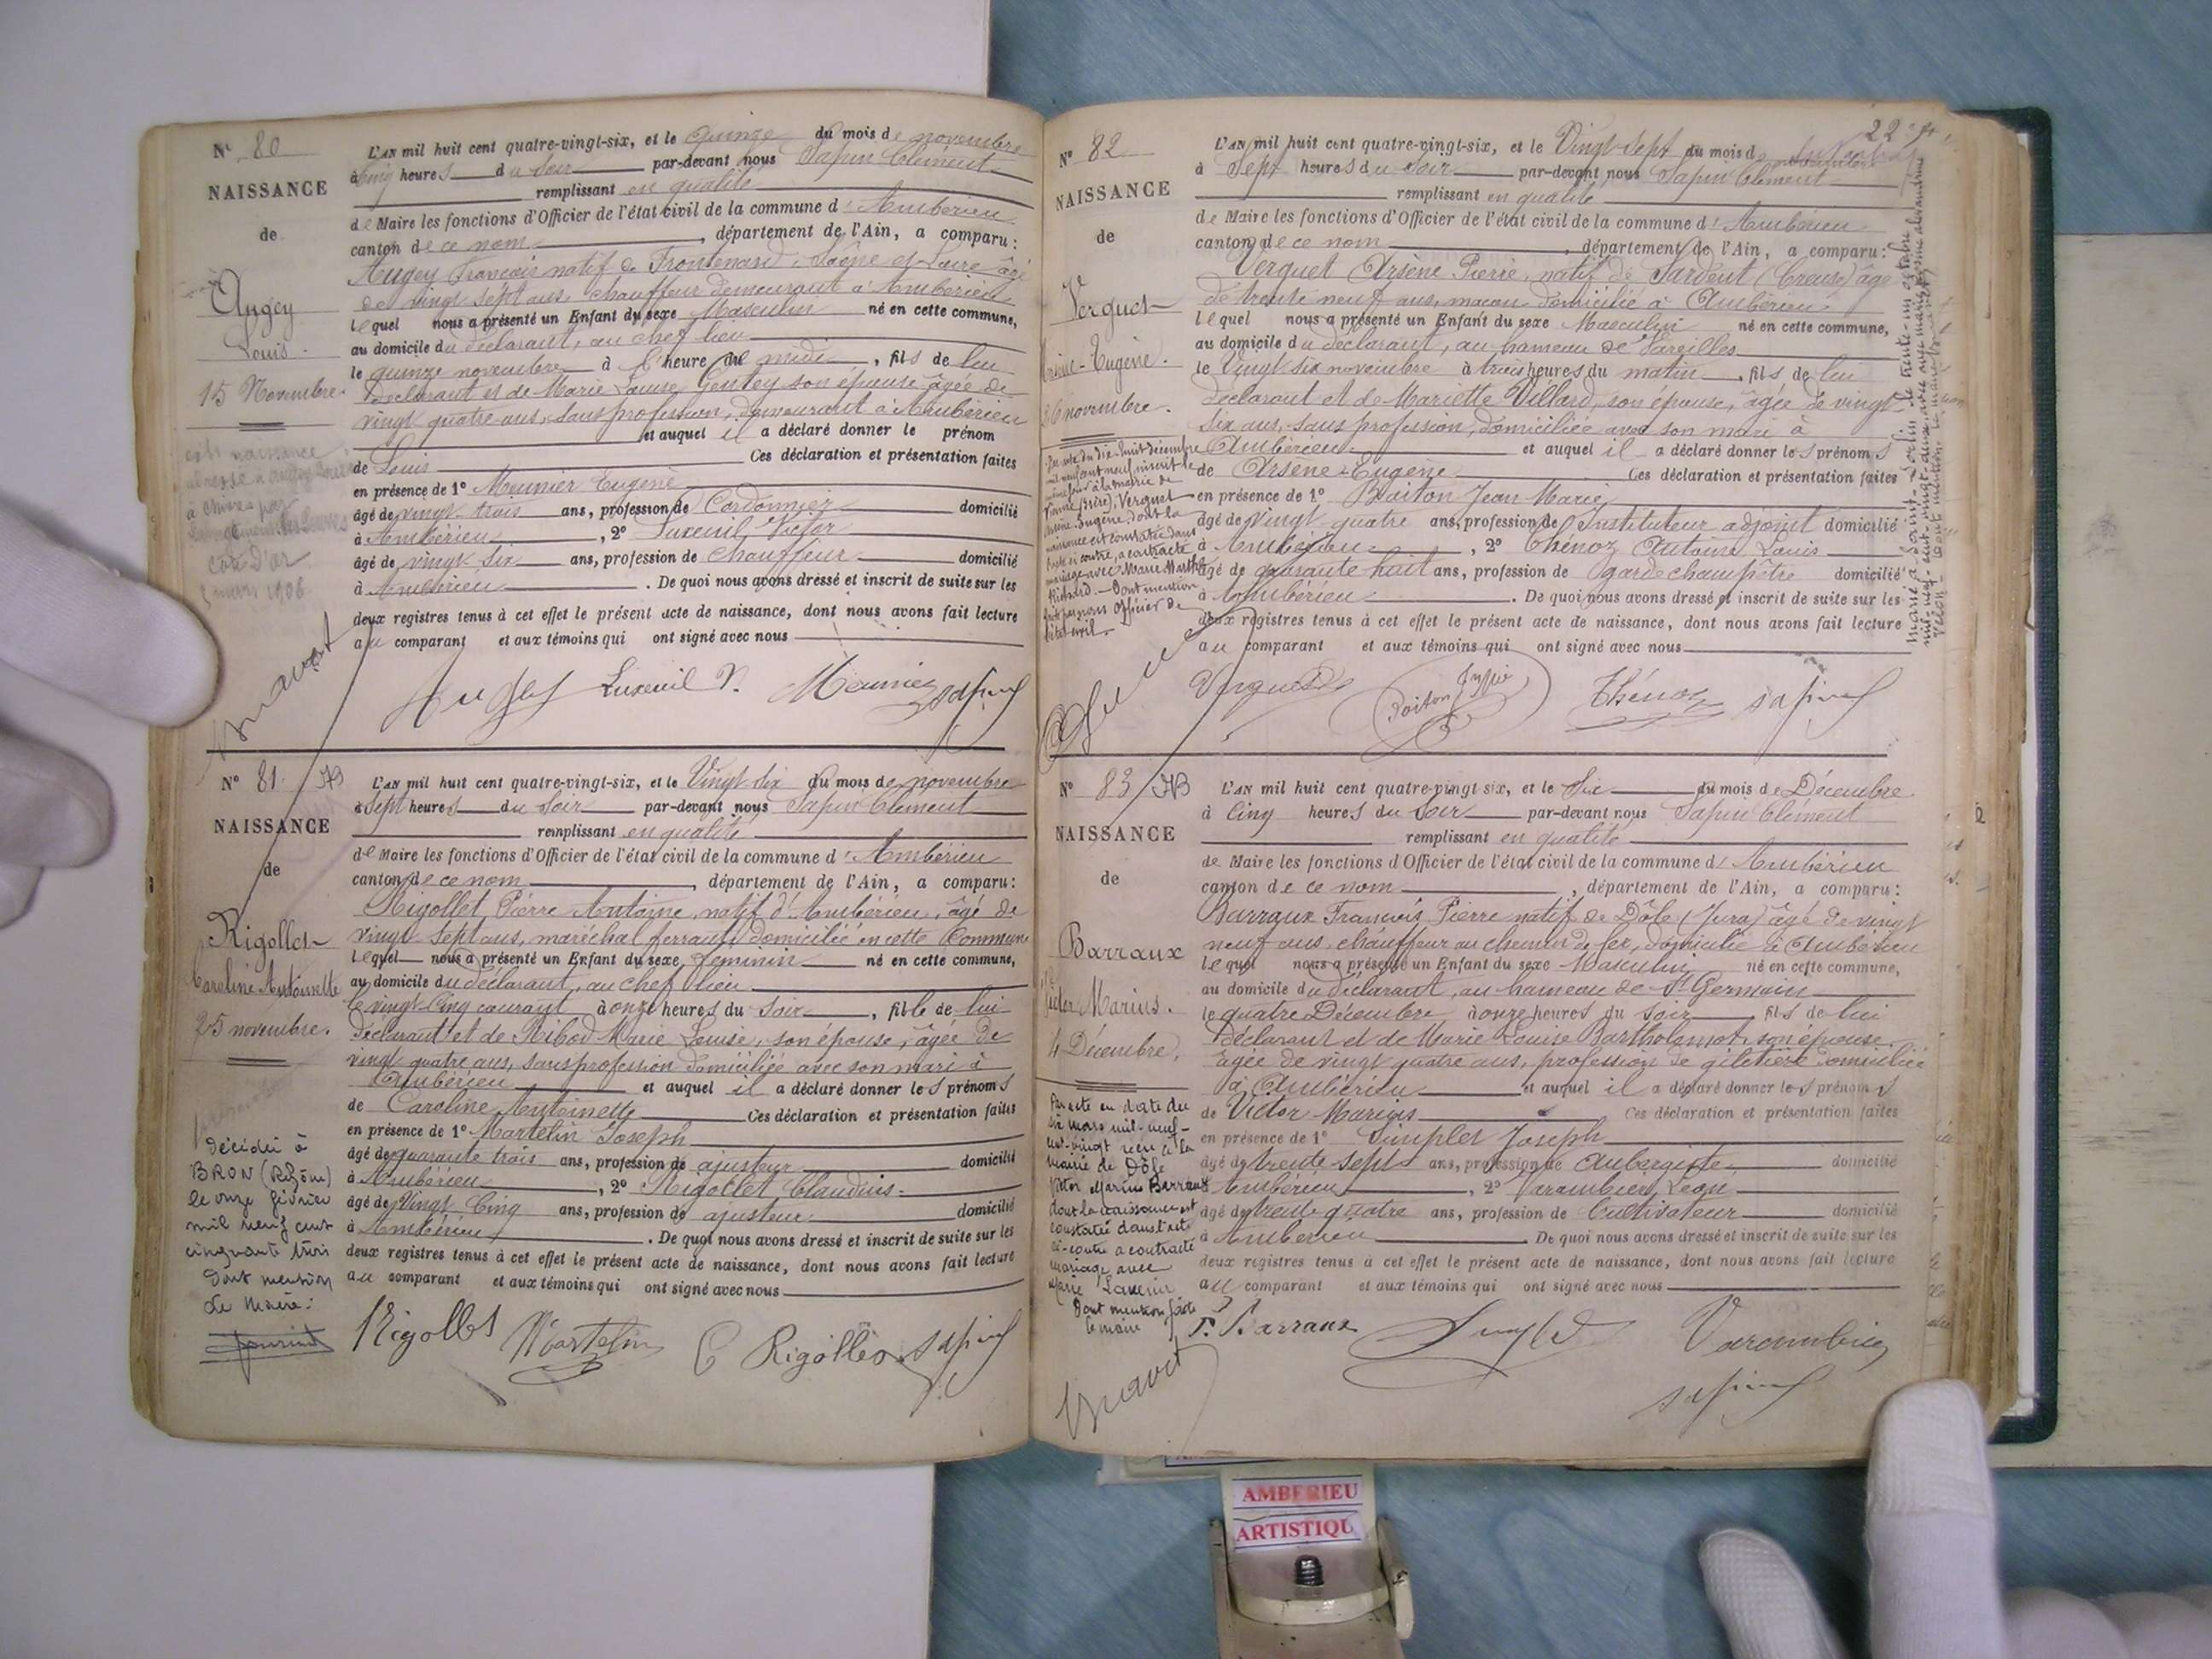 N° 80
NAISSANCE
de
Augey
Louis
15 Novembre.
L'AN mil huit cent quatre-vingt-six, et le Quinze du mois de novembre
à cinq heures du Soir par-devant nous Sapin Clément
remplissant en qualité
de Maire les fonctions d'Officier de l'état civil de la commune d'Ambérieu
canton de ce nom, département de l'Ain, a comparu :
Augey François natif de Frontenard, Saône et Loire âgé
de vingt sept ans, chauffeur demeurant à Ambérieu
lequel nous a présenté un Enfant du sexe Masculin né en cette commune,
au domicile du déclarant, au chef lieu
le quinze novembre à l'heure de midi, fils de lui
déclarant et de Marie Louise Gentey son épouse âgée de
vingt quatre ans, sans profession, demeurant à Ambérieu
et auquel il a déclaré donner le prénom
de Louis Ces déclaration et présentation faites
en présence de 1° Meunier Eugène
âgé de vingt trois ans, profession de Cordonnier domicilié
à Ambérieu, 2° Luxeuil Victor
âgé de vingt six ans, profession de chauffeur domicilié
à Ambérieu. De quoi nous avons dressé et inscrit de suite sur les
deux registres tenus à cet effet le présent acte de naissance, dont nous avons fait lecture
au comparant et aux témoins qui ont signé avec nous
Côte d'or
3 mars 1906
Luxeuil V. Meunier Sapin
N° 81.
NAISSANCE
de
Rigollet
Caroline Antoinette
25 novembre.
L'AN mil huit cent quatre-vingt-six, et le Vingt six du mois de novembre
à sept heures du Soir par-devant nous Sapin Clément
remplissant en qualité
de Maire les fonctions d'Officier de l'état civil de la commune d'Ambérieu
canton de ce nom, département de l'Ain, a comparu :
Rigollet Pierre Antoine, natif d'Ambérieu, âgé de
vingt sept ans, maréchal ferrant, domicilié en cette Commune
lequel nous a présenté un Enfant du sexe féminin né en cette commune,
au domicile du déclarant, au chef lieu
le vingt cinq courant à onze heures du soir, fille de lui
déclarant et de Ribod Marie Louise, son épouse, âgée de
vingt quatre ans, sans profession domiciliée avec son mari à
Ambérieu et auquel il a déclaré donner les prénoms
de Caroline Antoinette Ces déclaration et présentation faites
en présence de 1° Martelin Joseph
âgé de quarante trois ans, profession de ajusteur domicilié
à Ambérieu, 2° Rigollet Claudius
âgé de Vingt Cinq ans, profession de ajusteur domicilié
à Ambérieu. De quoi nous avons dressé et inscrit de suite sur les
deux registres tenus à cet effet le présent acte de naissance, dont nous avons fait lecture
au comparant et aux témoins qui ont signé avec nous
Décédée à
BRON (Rhône)
le onze février
mil neuf cent
cinquante trois
Dont mention
Le Maire :
Rigollet Martelin C Rigollet Sapin
N° 82
NAISSANCE
de
Verguet
Arsène-Eugène.
26 novembre.
L'AN mil huit cent quatre-vingt-six, et le Vingt-sept du mois de novembre
à Sept heures du Soir par-devant nous Sapin Clément
remplissant en qualité
de Maire les fonctions d'Officier de l'état civil de la commune d'Ambérieu
canton de ce nom, département de l'Ain, a comparu :
Verguet Arsène Pierre, natif de Sardent (Creuse) âgé
de trente neuf ans, maçon domicilié à Ambérieu
lequel nous a présenté un Enfant du sexe Masculin né en cette commune,
au domicile du déclarant, au hameau de Vareilles
le Vingt six novembre à trois heures du matin, fils de lui
déclarant et de Mariette Villard, son épouse, âgée de vingt
six ans, sans profession, domiciliée avec son mari à
Ambérieu et auquel il a déclaré donner les prénoms
de Arsène-Eugène Ces déclaration et présentation faites
en présence de 1° Boiton Jean Marie
âgé de vingt quatre ans, profession de Instituteur adjoint domicilié
à Ambérieu, 2° Thénoz Antoine Louis
âgé de quarante huit ans, profession de garde champêtre domicilié
à Ambérieu. De quoi nous avons dressé et inscrit de suite sur les
deux registres tenus à cet effet le présent acte de naissance, dont nous avons fait lecture
au comparant et aux témoins qui ont signé avec nous
Par acte du dix-huit décembre
mil neuf cent neuf inscrit le
même jour à la mairie de
Vienne (Isère), Verguet
Arsène-Eugène, dont la
naissance est constatée dans
l'acte ci contre, a contracté
mariage avec Marie Marthe
Richard. - Dont mention
faite par nous Officier de
l'état-civil.
Verguet Boiton Thénoz Sapin
N° 83
NAISSANCE
de
Barraux
Victor Marius.
4 Décembre,
L'AN mil huit cent quatre-vingt-six, et le Six du mois de Décembre
à Cinq heures du Soir par-devant nous Sapin Clément
remplissant en qualité
de Maire les fonctions d'Officier de l'état civil de la commune d'Ambérieu
canton de ce nom, département de l'Ain, a comparu :
Barraux François Pierre natif de Dôle (Jura) âgé de vingt
neuf ans, chauffeur au chemin de fer, domicilié à Ambérieu
lequel nous a présenté un Enfant du sexe Masculin né en cette commune,
au domicile du déclarant, au hameau de St Germain
le quatre Décembre à onze heures du soir, fils de lui
déclarant et de Marie Louise Bartholomot, son épouse
âgée de vingt quatre ans, profession de giletière domiciliée
à Ambérieu et auquel il a déclaré donner les prénoms
de Victor Marius Ces déclaration et présentation faites
en présence de 1° Simplet Joseph
âgé de trente sept ans, profession de Aubergiste domicilié
à Ambérieu, 2° Varambier Léon
âgé de trente quatre ans, profession de Cultivateur domicilié
à Ambérieu. De quoi nous avons dressé et inscrit de suite sur les
deux registres tenus à cet effet le présent acte de naissance, dont nous avons fait lecture
au comparant et aux témoins qui ont signé avec nous
Par acte en date du
six mars mil-neuf-
cent-vingt reçu à la
mairie de Dôle
Victor Marius Barraux
dont la naissance est
constatée dans l'acte
ci-contre a contracté
mariage avec
Marie
Dont mention faite
le maire
P. Barraux Varambier
Sapin
AMBERIEU
ARTISTIQU